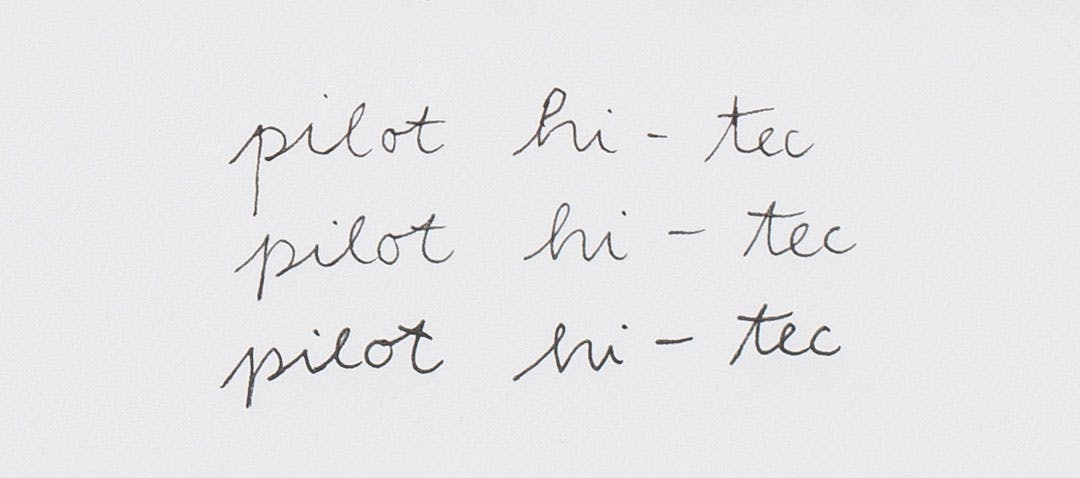 pilot hi - tec
pilot hi - tec
pilot hi - tec